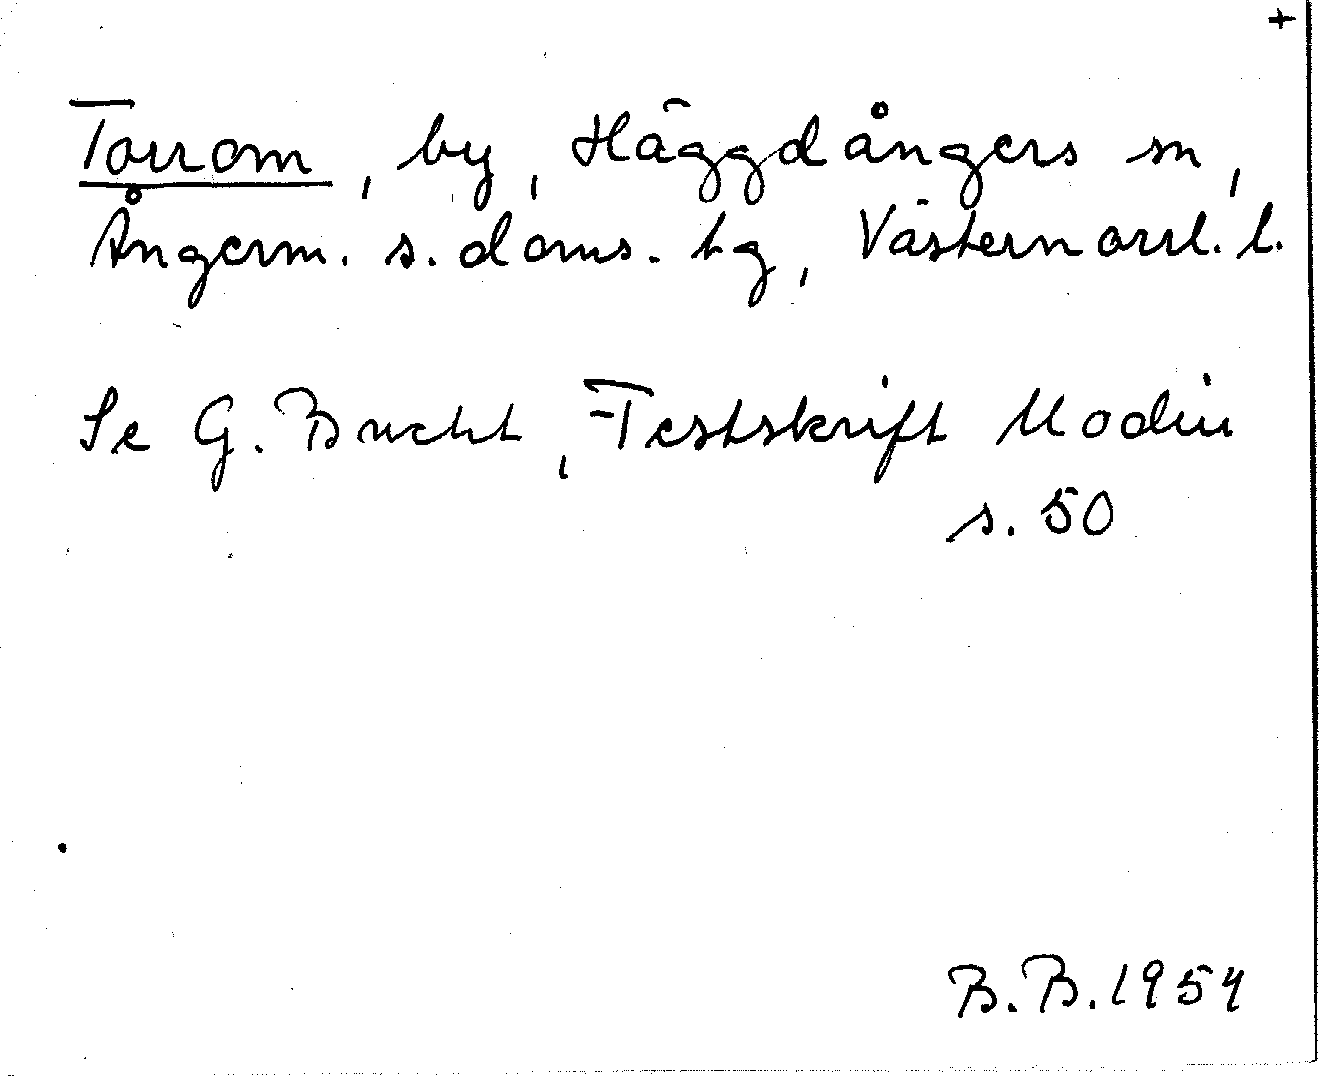 +
Torrom, by, Häggdångers sn,
Ångerm. s. doms. tg, Västernorrl. l.
Se G. Bucht, Festskrift Modin
s. 50
B.B. 1954